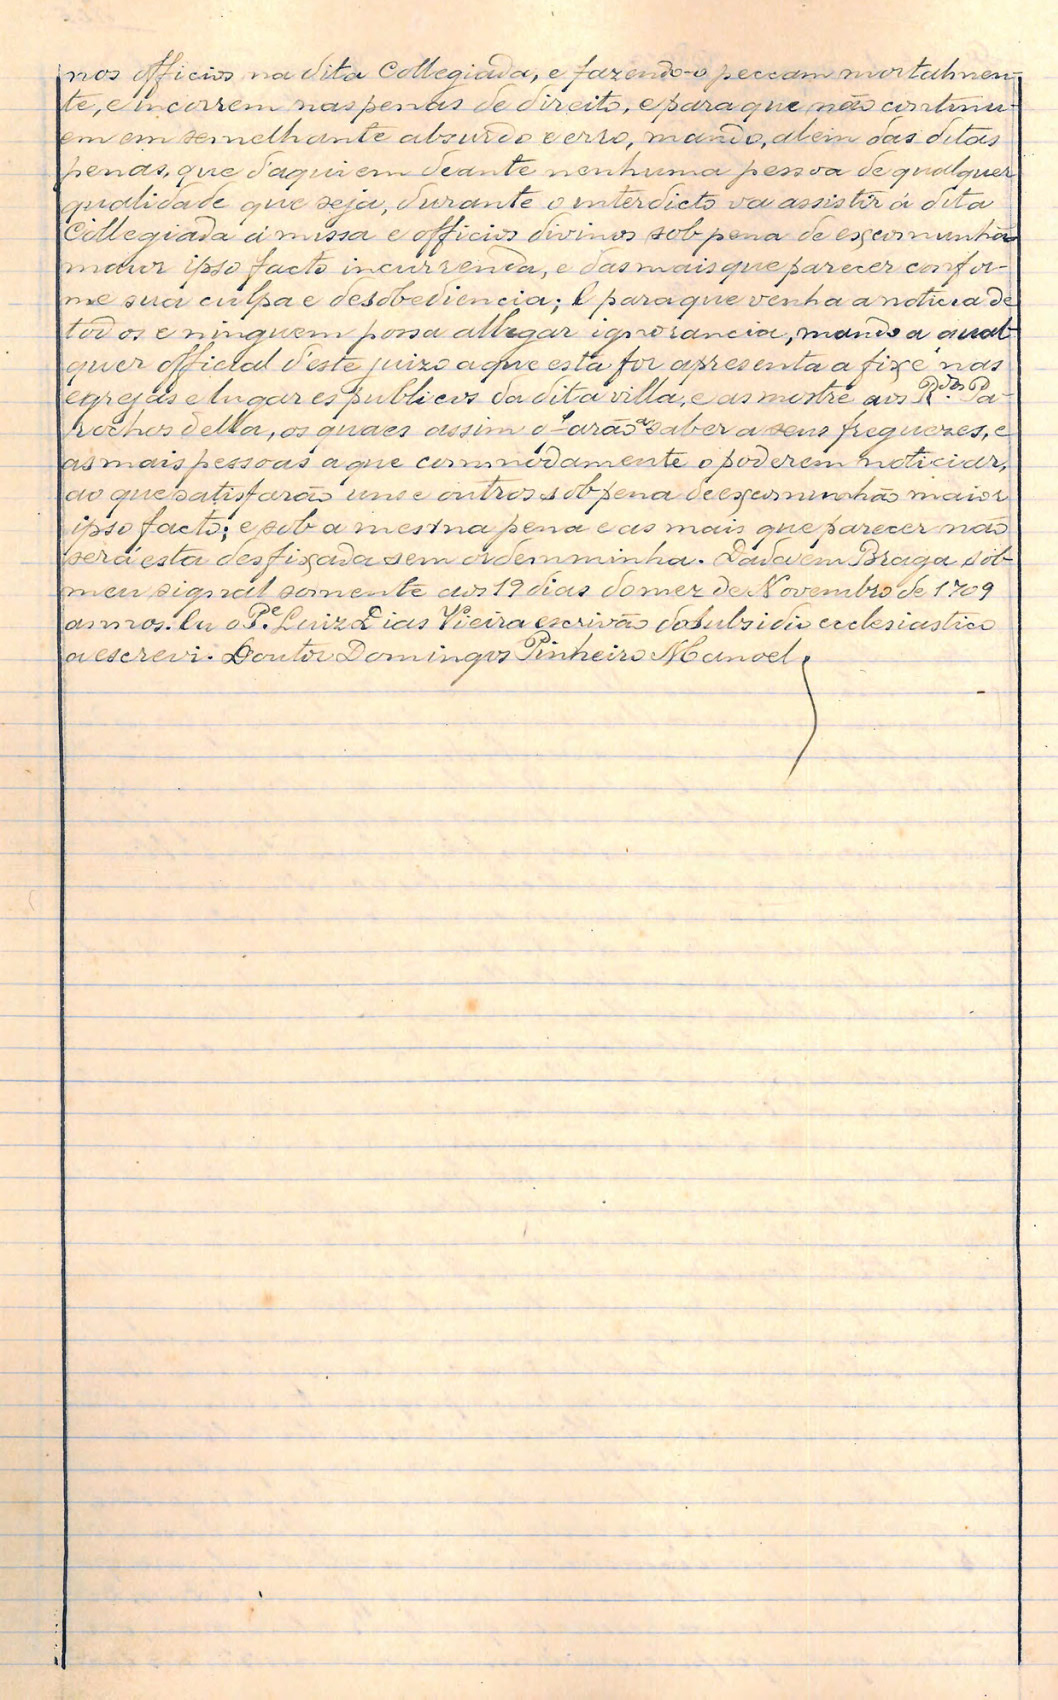 nos officios na dita Collegiada, e fazendo-o peccam mortalmen-
te, e incorrem nas penas de direito, e para que não continu-
em em semelhante absurdo e erro, mando, alem das ditas
penas, que d'aqui em deante nenhuma pessoa de qualquer
qualidade que seja, durante o interdicto va assistir á dita
Collegiada á missa e officios divinos sob pena de excomunhão
maior ipso facto incurrenda, e das mais que parecer confor-
me sua culpa e desobediencia; E para que venha a noticia de
todos e ninguem possa allegar ignorancia, mando a qual-
quer official d'este juizo a que esta for apresenta a fixe nas
egrejas e lugares publicos da dita villa, e as mostre aos R.dos Pa-
rochos della, os quaes assim o farão a saber a seus freguezes, e
as mais pessoas a que commodamente o poderem noticiar,
ao que satisfarão uns e outros sob pena de excomunhão maior
ipso facto; e sob a mesma pena e as mais que parecer não
será esta desfixada sem ordem minha. Dada em Braga sob
meu signal somente aos 19 dias do mez de Novembro de 1709
annos. Eu o P.e Luiz Dias Vieira escrivão do subsidio ecclesiastico
a escrevi. Doutor Domingos Pinheiro Manoel.